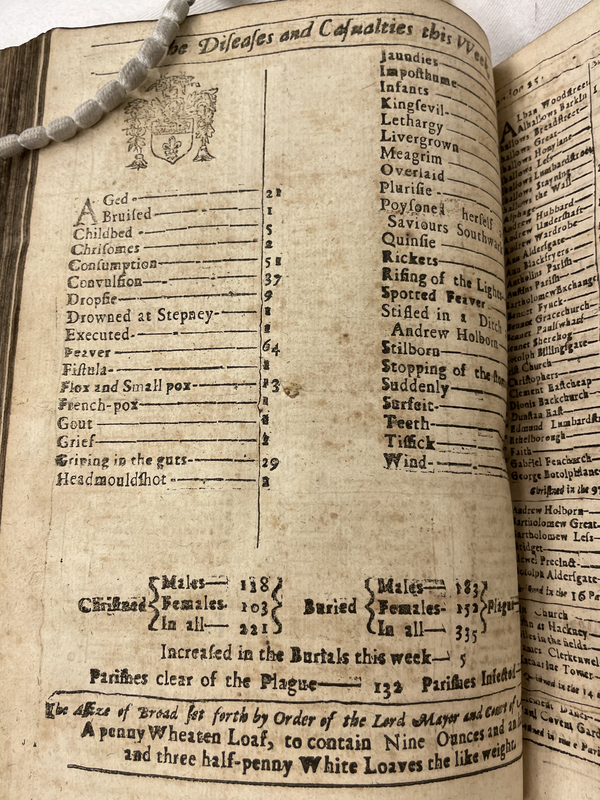 he Diſeaſes and Caſualties this Week
AGed 21
Bruiſed 1
Childbed 5
Chriſomes 2
Conſumption 51
Convulſion 37
Dropſie 9
Drowned at Stepney
Executed
Feaver 64
Fiſtula
Flox and Small pox 13
French-pox
Gout
Grief
Griping in the guts 29
Headmouldſhot
Jaundies
Impoſthume
Infants
Kingſevil
Lethargy
Livergrown
Meagrim
Overlaid
Pluriſie
Poyſoned herſelf
Saviours Southwark
Quinſie
Rickets
Riſing of the Lights
Spotted Feaver
Stifled in a Ditch
Andrew Holborn
Stilborn
Stopping of the
Suddenly
Surfeit
Teeth
Tiſſick
Wind
Chriſtned { Males 118 Females 103 In all 221 } Buried { Males 183 Females 152 In all 335 } Plague
Increaſed in the Burials this week 5
Pariſhes clear of the Plague 132 Pariſhes Infected
The Aſſize of Bread ſet forth by Order of the Lord Mayor and Court of
A penny Wheaten Loaf, to contain Nine Ounces and an
and three half-penny White Loaves the like weight.
Alban Woodſtreet
Alhallows Barkin
Breadſtreet
Great
Honylane
Leſs
Lumbardſtreet
Staining
the Wall
Hubbard
Underſhaft
Wardrobe
Alderſgate
Blackfryers
Pariſh
Pariſh
Bartholomew Exchange
Bennet Fynck
Bennet Gracechurch
Bennet Paulſwharf
Bennet Sherehog
Botolph Billingſgate
Church
Chriſtophers
Clement Eaſtcheap
Dionis Backchurch
Dunſtan Eaſt
Edmund Lumbardſtreet
Ethelborough
Faith
Gabriel Fenchurch
George Botolphlane
Chriſtned in the 97
Andrew Holborn
Bartholomew Great
Bartholomew Leſs
Bridget
Bridewel Precinct
Botolph Alderſgate
in the 16 Pa
Church
at Hackney
in the fields
James Clerkenwel
Katharine Tower
in the 14
Clement Danes
Covent Gard